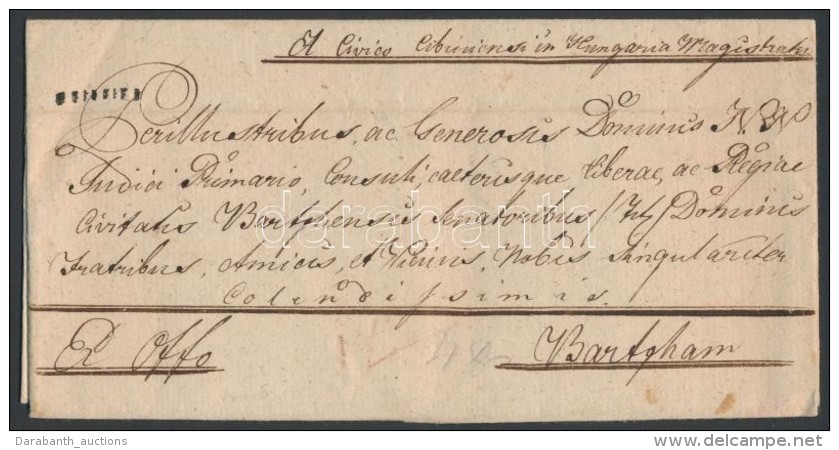 A Civico Cibiniensi in Hungaria Magistratu
Perillustribus, ac Generosis Dominis N. N.
Judici Primario, Consuli, caeterisque Liberae, ac Regiae
Civitatis Bartphensis Senatoribus /Ttt/ Dominis
Fratribus, Amicis, et Vicinis, Nobis Singulariter
Colendissimis.
Ex Offo
Bartpham
darabanth
Darabanth_auctions
delcampe.net